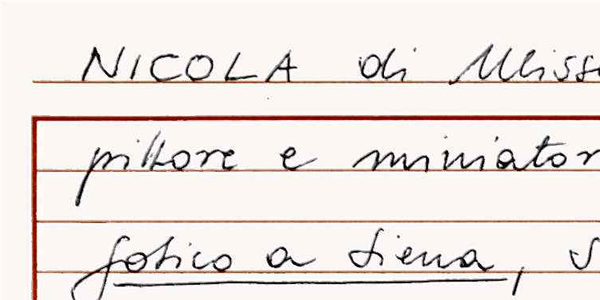 NICOLA di Ulisse
pittore e miniator
gotico a Siena, S